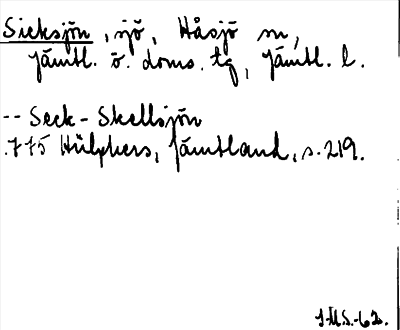 Sicksjön, sjö, Håsjö sn,
Jämtl. ö. doms. tg, Jämtl. l.
-- Seck-Skellsjön
.775 Hülphers, Jämtland, s. 219.
J.M.S.-62.